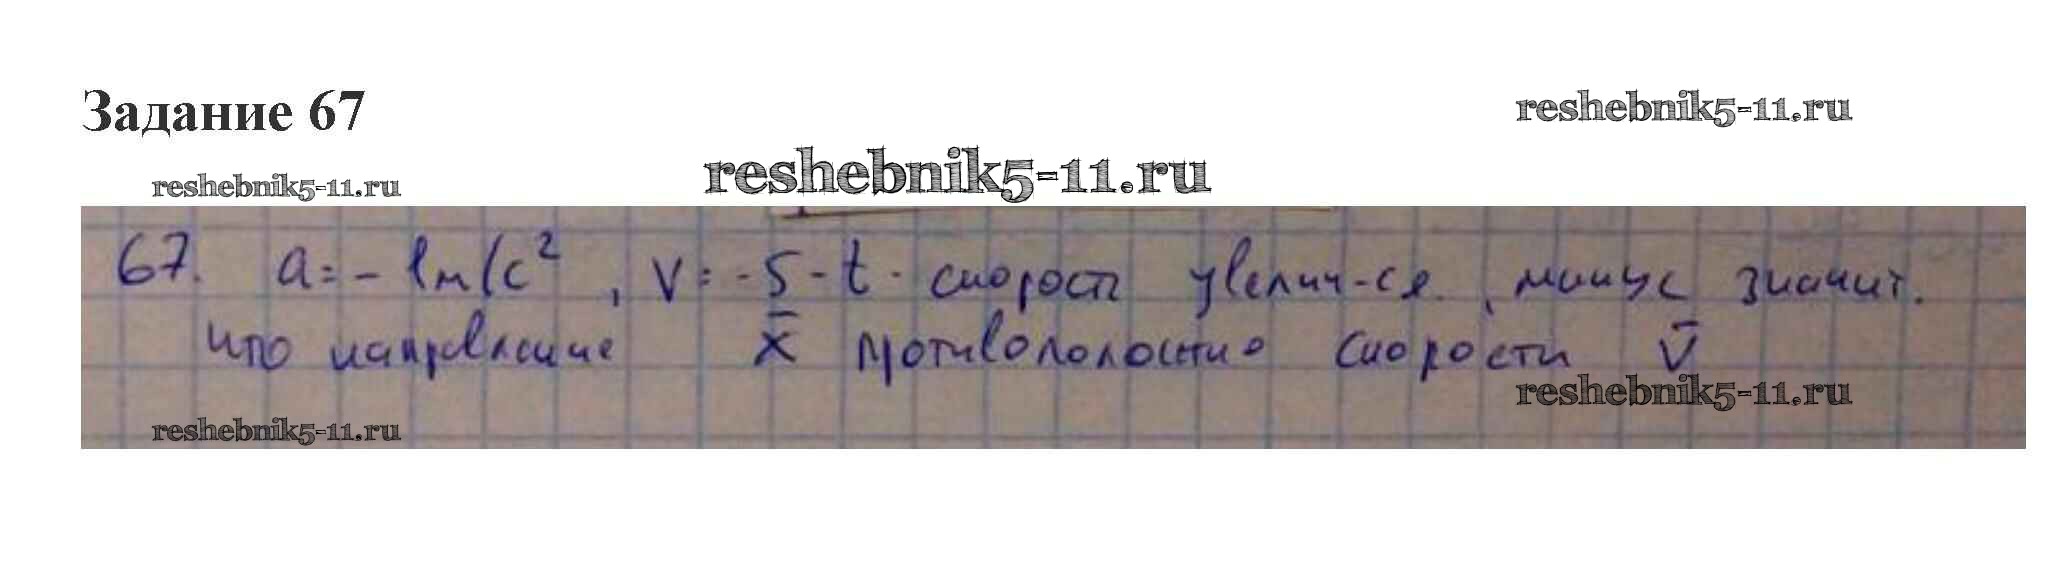 Задание 67
reshebnik5-11.ru
reshebnik5-11.ru
reshebnik5-11.ru
67. a = - 1м/с², v = -5 - t - скорость увелич-ся, минус значит.
что направление x̄ противополостно скорости v̄
reshebnik5-11.ru
reshebnik5-11.ru